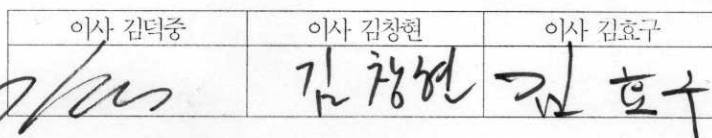 이사 김덕중 이사 김창현 이사 김효구
김창현 김효구